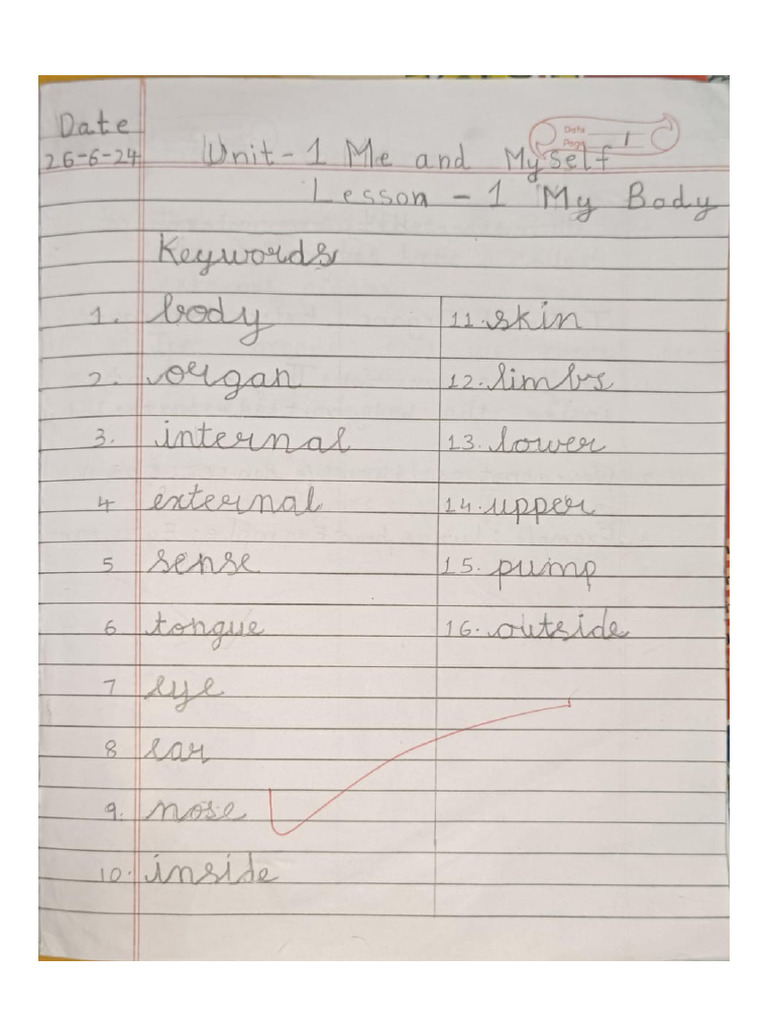 Date
26-6-24
Date
Page 1
Unit-1 Me and Myself
Lesson - 1 My Body
Keywords
1. body
2. organ
3. internal
4 external
5 sense
6 tongue
7 eye
8 ear
9. nose
10. inside
11. skin
12. limbs
13. lower
14. upper
15. pump
16. outside